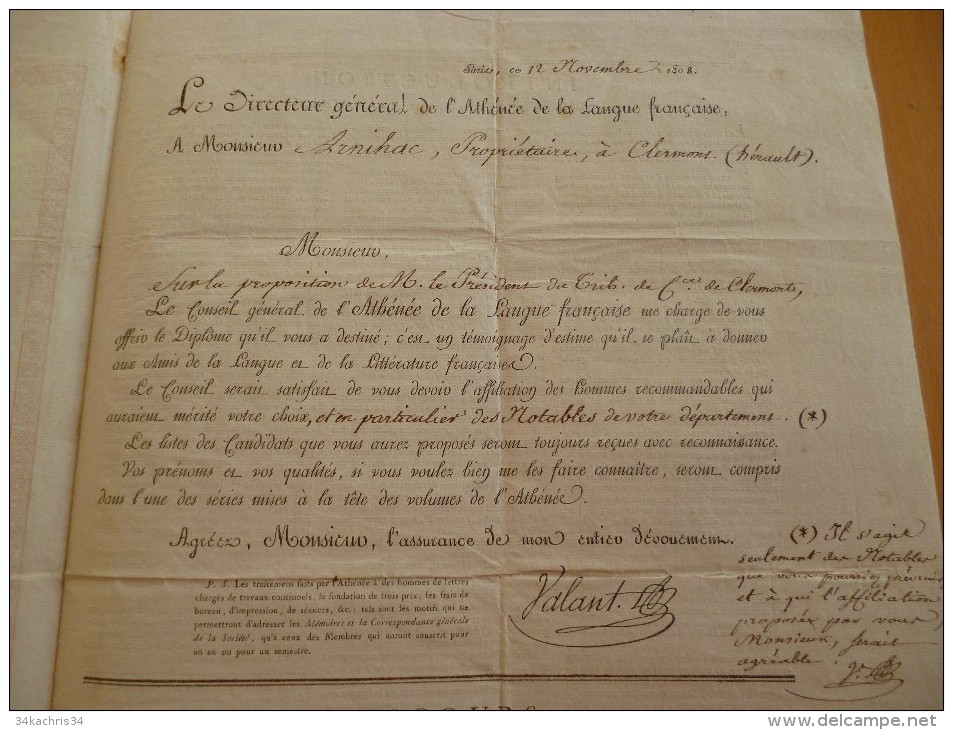 Paris, ce 12 Novembre 1808.
Le Directeur général de l'Athénée de la Langue française,
A Monsieur Arnihac, Propriétaire, à Clermont (hérault).
Monsieur,
Sur la proposition de M. le Président du Trib. de Cce de Clermont,
Le Conseil général de l'Athénée de la Langue française me charge de vous
offrir le Diplôme qu'il vous a destiné; c'est un témoignage d'estime qu'il se plaît à donner
aux Amis de la Langue et de la Littérature françaises.
Le Conseil serait satisfait de vous devoir l'affiliation des hommes recommandables qui
auraient mérité votre choix, et en particulier des Notables de votre département. (*)
Les listes des Candidats que vous aurez proposés seront toujours reçues avec reconnaissance.
Vos prénoms et vos qualités, si vous voulez bien me les faire connaître, seront compris
dans l'une des séries mises à la tête des volumes de l'Athénée.
Agréez, Monsieur, l'assurance de mon entier dévouement.
P. S. Les traitemens faits par l'Athénée à des hommes de lettres
chargés de travaux continuels, la fondation de trois prix, les frais de
bureau, d'impression, de séances, &c. tels sont les motifs qui ne
permettront d'adresser les Mémoires et la Correspondance générale
de la Société, qu'à ceux des Membres qui auront souscrit pour
un an ou pour un semestre.
Valant.
(*) Il s'agit
seulement des Notables
que vous pourriez prévenir
et à qui l'affiliation
proposée par vous,
Monsieur, serait
agréable. V.
COURS
34kachris34
www.delcampe.net